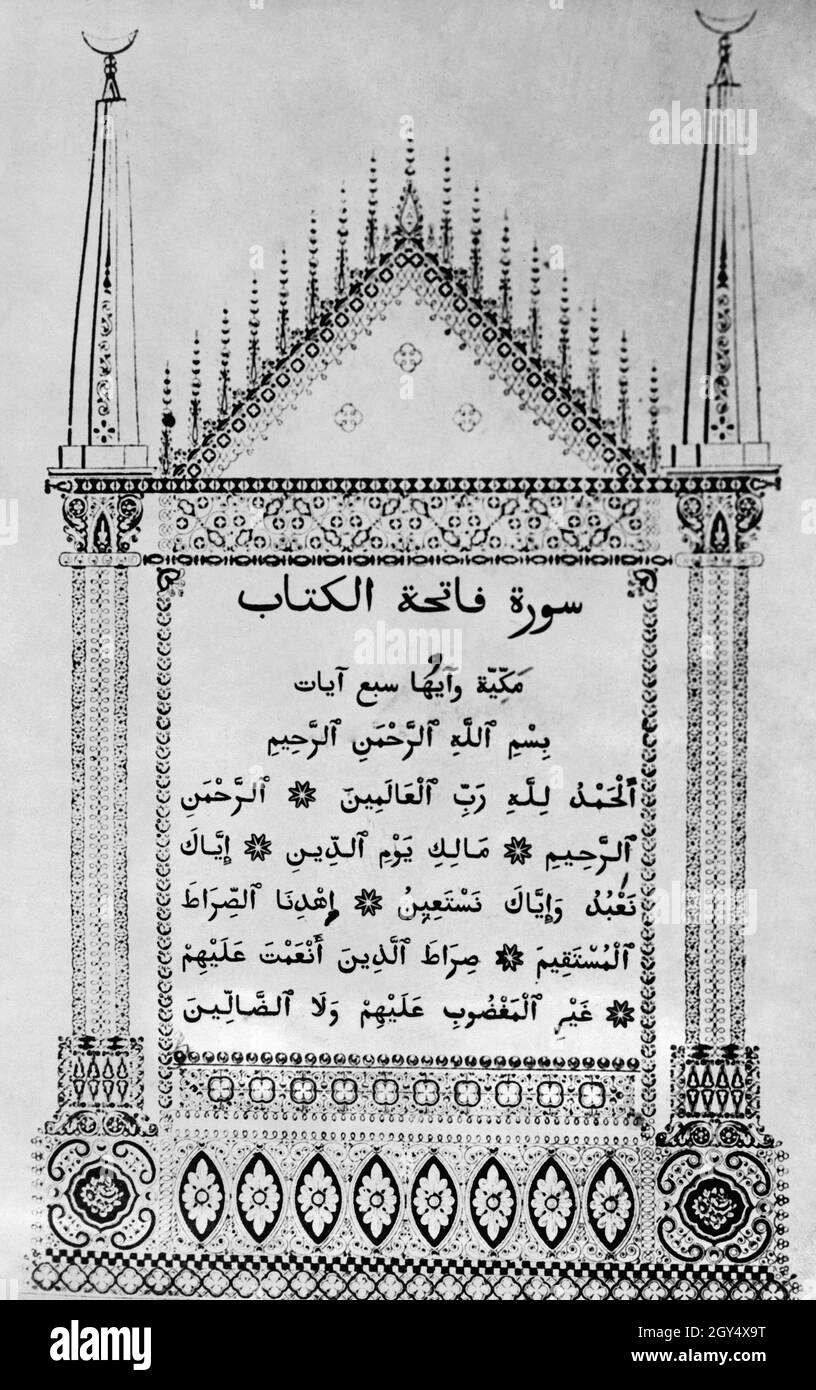 سورة فاتحة الكتاب
مَكّيّة وآيُها سبع آيات
بِسْمِ ٱللَّهِ ٱلرَّحْمَنِ ٱلرَّحِيمِ
ٱلْحَمْدُ لِلَّهِ رَبِّ ٱلْعَالَمِينَ ❋ ٱلرَّحْمَنِ
ٱلرَّحِيمِ ❋ مَالِكِ يَوْمِ ٱلدِّينِ ❋ إِيَّاكَ
نَعْبُدُ وَإِيَّاكَ نَسْتَعِينُ ❋ اِهْدِنَا ٱلصِّرَاطَ
ٱلْمُسْتَقِيمَ ❋ صِرَاطَ ٱلَّذِينَ أَنْعَمْتَ عَلَيْهِمْ
❋ غَيْرِ ٱلْمَغْضُوبِ عَلَيْهِمْ وَلَا ٱلضَّالِّينَ
alamy
a
a
alamy
a
alamy
Image ID: 2GY4X9T
www.alamy.com